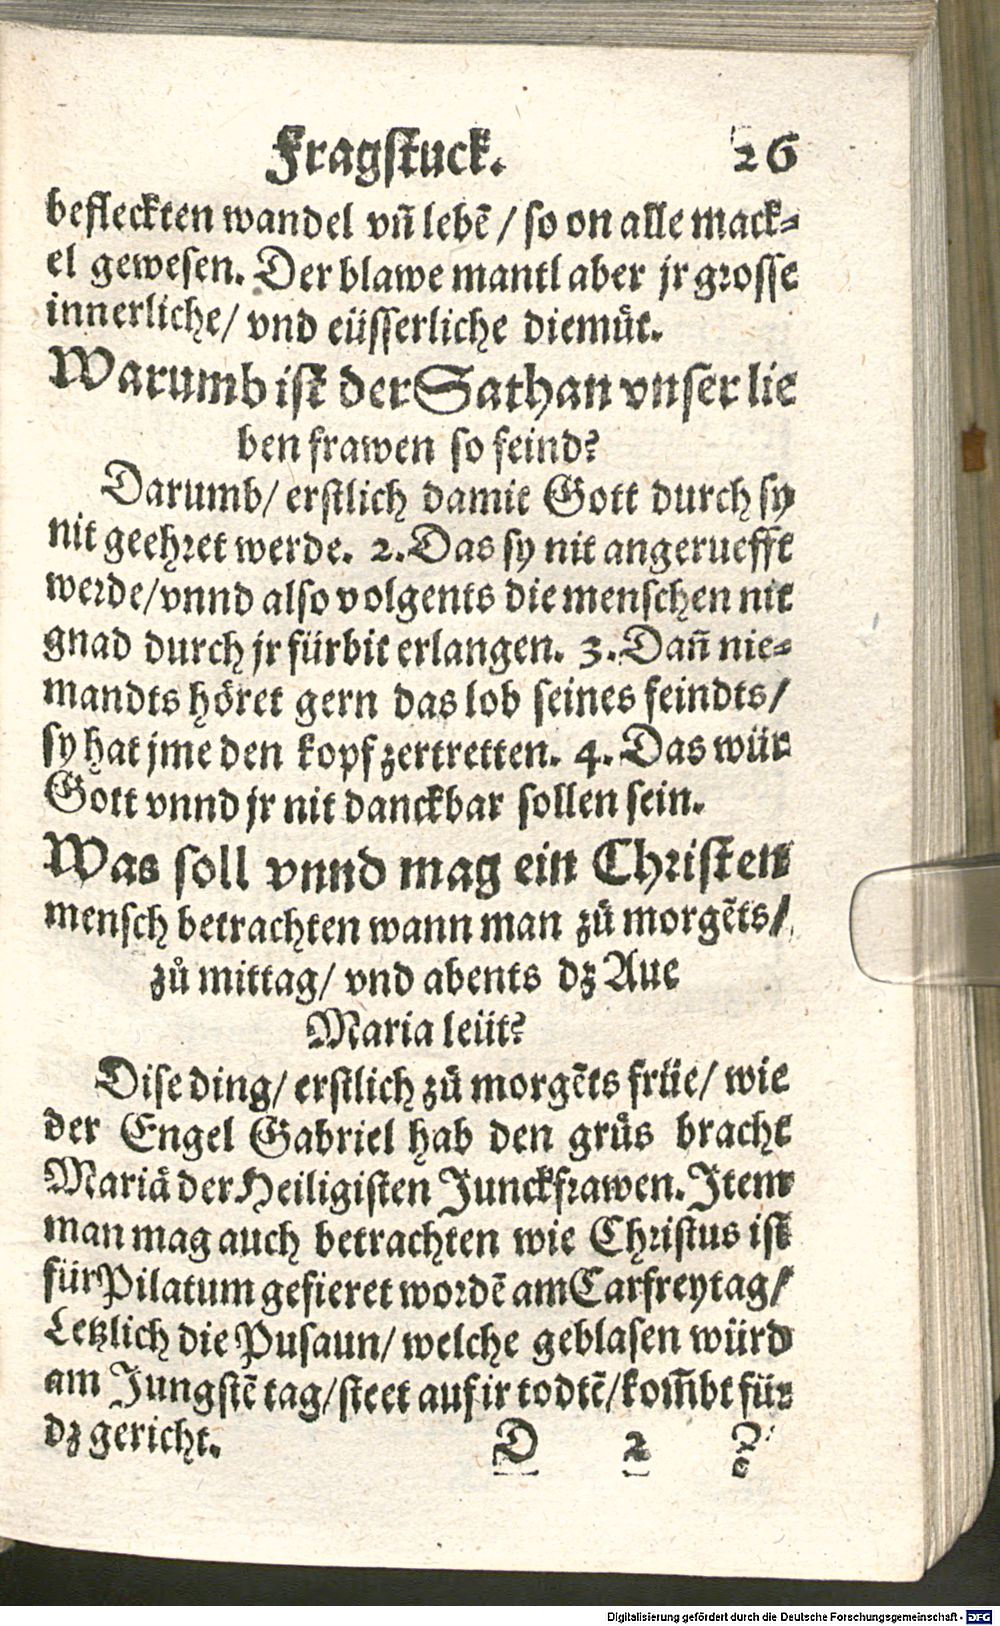 Fragstuck. 26
befleckten wandel vñ lebẽ / so on alle mack⸗
el gewesen. Der blawe mantl aber jr grosse
innerliche / vnd eüsserliche diemuͤt.
Warumb ist der Sathan vnser lie
ben frawen so feind?
Darumb / erstlich damit Gott durch sy
nit geehret werde. 2. Das sy nit angeruefft
werde / vnnd also volgents die menschen nit
gnad durch jr fürbit erlangen. 3. Dañ nie⸗
mandts höret gern das lob seines feindts /
sy hat jme den kopf zertretten. 4. Das wür
Gott vnnd jr nit danckbar sollen sein.
Was soll vnnd mag ein Christen
mensch betrachten wann man zů morgẽts /
zů mittag / vnd abents dz Aue
Maria leüt?
Dise ding / erstlich zů morgẽts früe / wie
der Engel Gabriel hab den grůs bracht
Mariä der Heiligisten Junckfrawen. Item
man mag auch betrachten wie Christus ist
für Pilatum gefieret wordẽ am Carfreytag /
Letzlich die Pusaun / welche geblasen würd
am Jungstẽ tag / steet auf ir todtẽ / kom̃bt für
dz gericht. D 2 ?
Digitalisierung gefördert durch die Deutsche Forschungsgemeinschaft - DFG